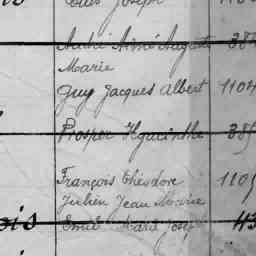 Louis Joseph 110
André Aimé Auguste 384
Marie
Guy Jacques Albert 1104
Prosper Hyacinthe 385
François Théodore 1105
Julien Jean Marie
ois Emile Marie Joseph